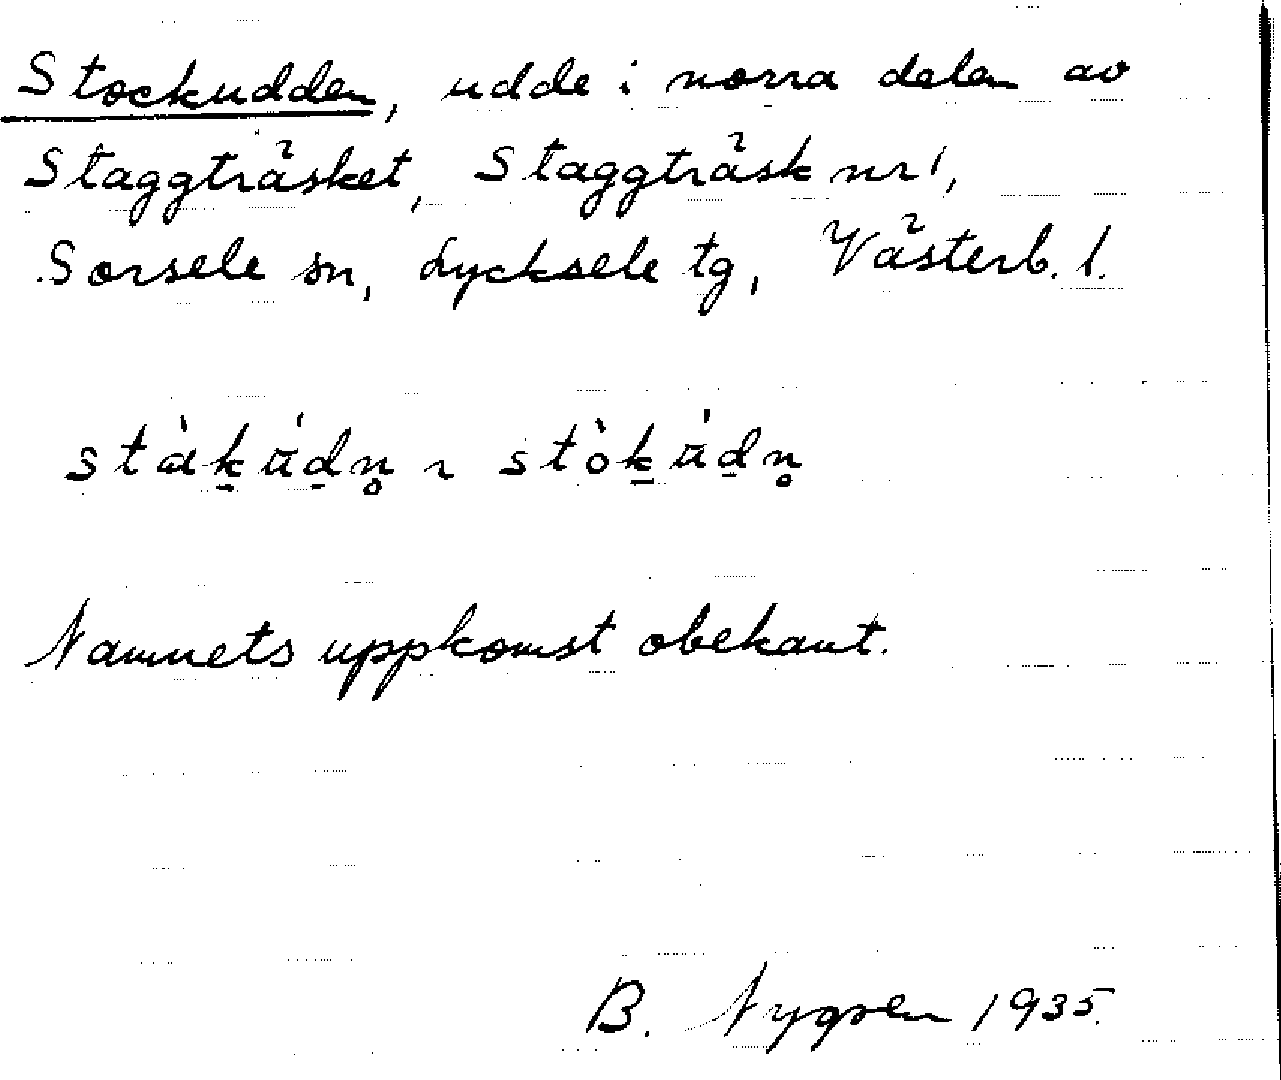 Stockudden, udde i norra delen av
Staggträsket, Staggträsk nr 1,
Sorsele sn, Lycksele tg, Västerb. l.
stàk̠ád̠n̥ ~ stòk̠ád̠n̥
Namnets uppkomst obekant.
B. Nygren 1935.